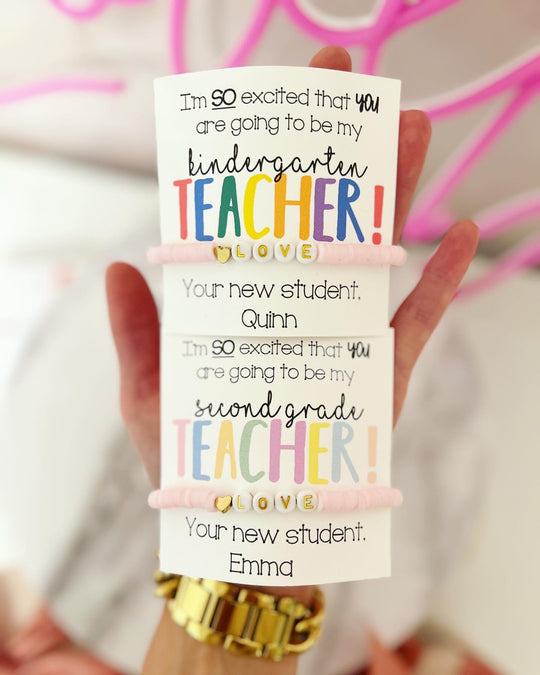 I'm SO excited that YOU
are going to be my
kindergarten
TEACHER!
LOVE
Your new student,
Quinn
I'm SO excited that YOU
are going to be my
second grade
TEACHER!
LOVE
Your new student,
Emma